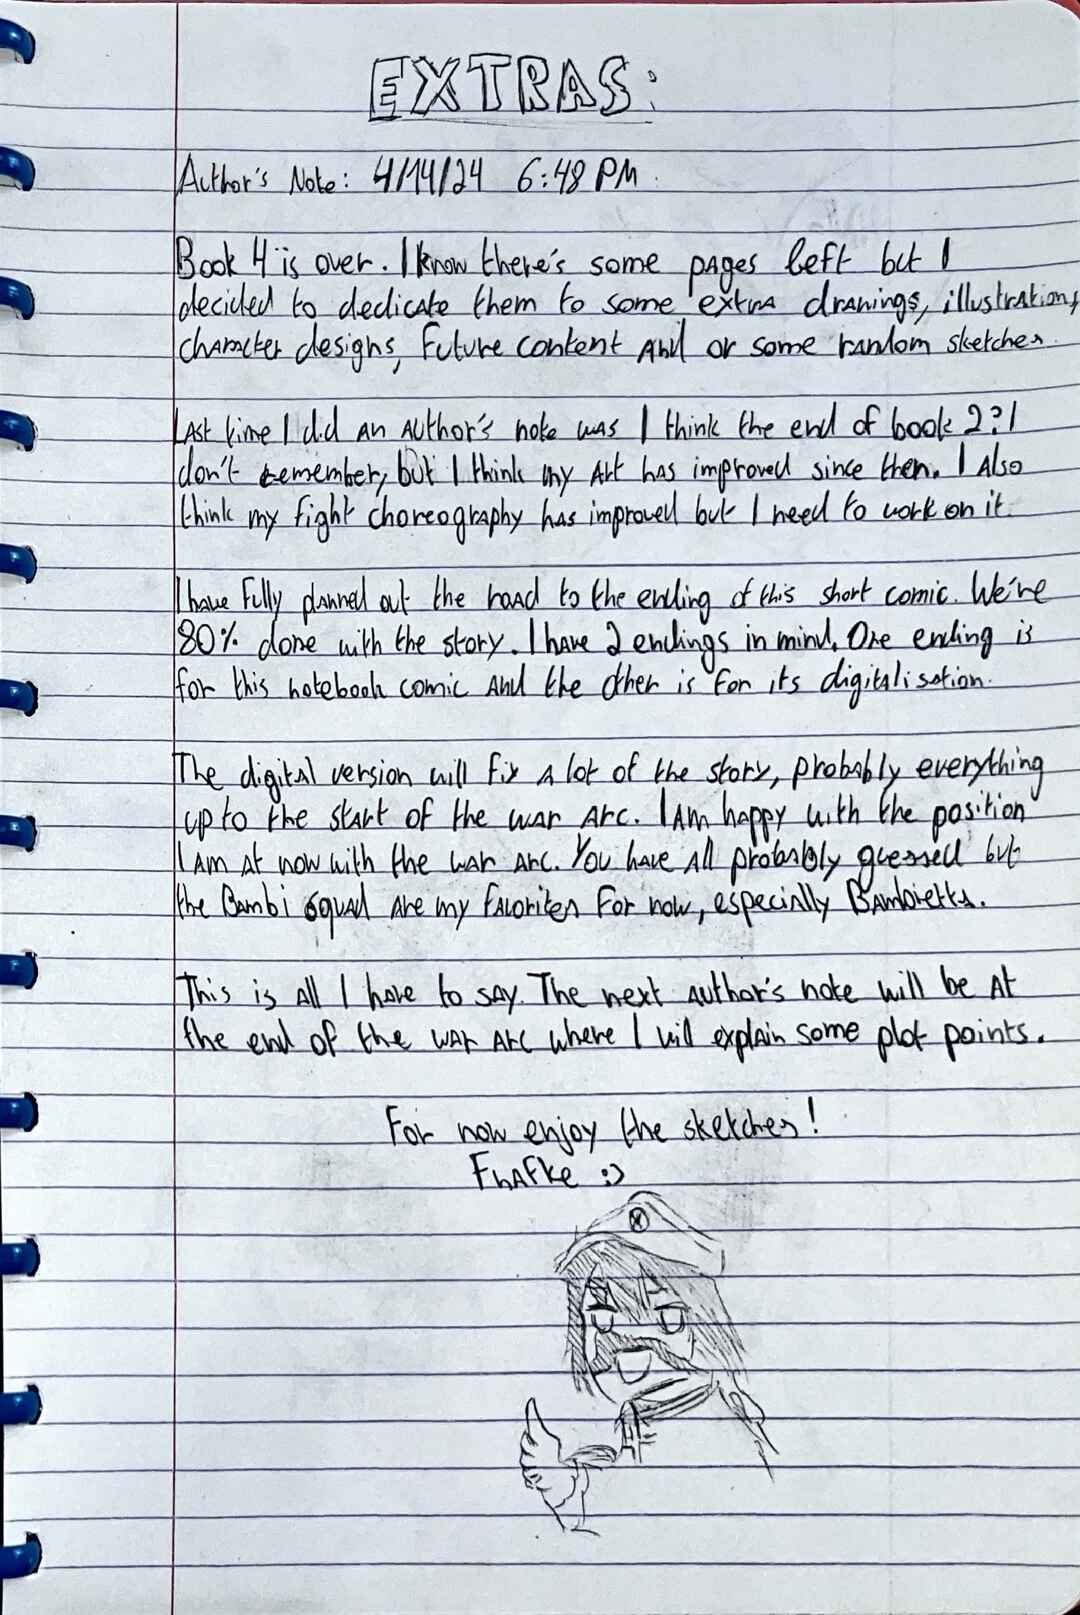 EXTRAS:
Author's Note: 4/14/24 6:48 PM.
Book 4 is over. I know there's some pages left but I
decided to dedicate them to some extra drawings, illustrations,
character designs, future content and or some random sketches.
Last time I did an author's note was I think the end of book 2? I
don't remember, but I think my art has improved since then. I also
think my fight choreography has improved but I need to work on it.
I have fully planned out the road to the ending of this short comic. We're
80% done with the story. I have 2 endings in mind. One ending is
for this notebook comic and the other is for its digitalisation.
The digital version will fix a lot of the story, probably everything
up to the start of the war arc. I am happy with the position
I am at now with the war arc. You have all probably guessed but
the Bambi squad are my favorites for now, especially Bambietta.
This is all I have to say. The next author's note will be at
the end of the war arc where I will explain some plot points.
For now enjoy the sketches!
Fhafke :)